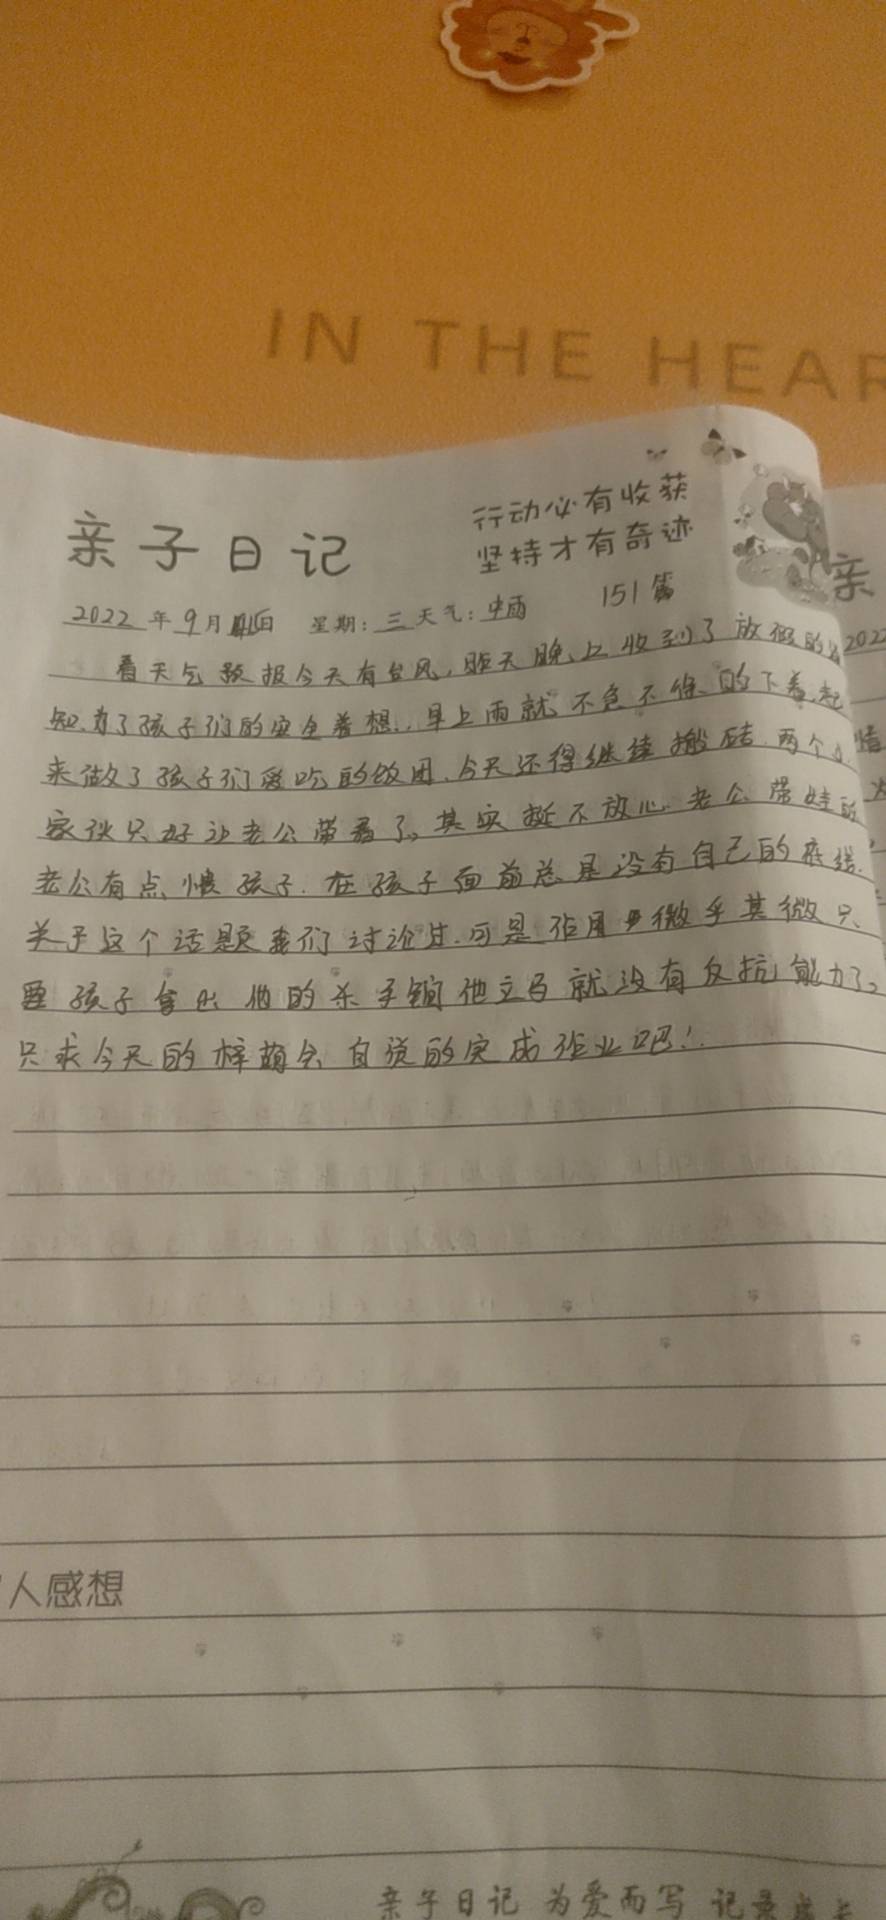 IN THE HEAR
行动必有收获
亲子日记
坚持才有奇迹
151篇
2022年9月14日 星期:三 天气:中雨
看天气预报今天有台风,昨天晚上收到了放假的通
知.为了孩子们的安全着想..早上雨就不急不徐的下着.起
来做了孩子们爱吃的饭团.今天还得继续搬砖.两个小
家伙只好让老公带着了。其实挺不放心老公带娃的
老公有点惯孩子.在孩子面前总是没有自己的底线.
关于这个话题我们讨论过.可是作用微乎其微只
要孩子拿出他的杀手锏他立马就没有反抗能力了。
只求今天的梓萌会自觉的完成作业吧!.
亲
2022
情
人感想
亲子日记 为爱而写 记录成长